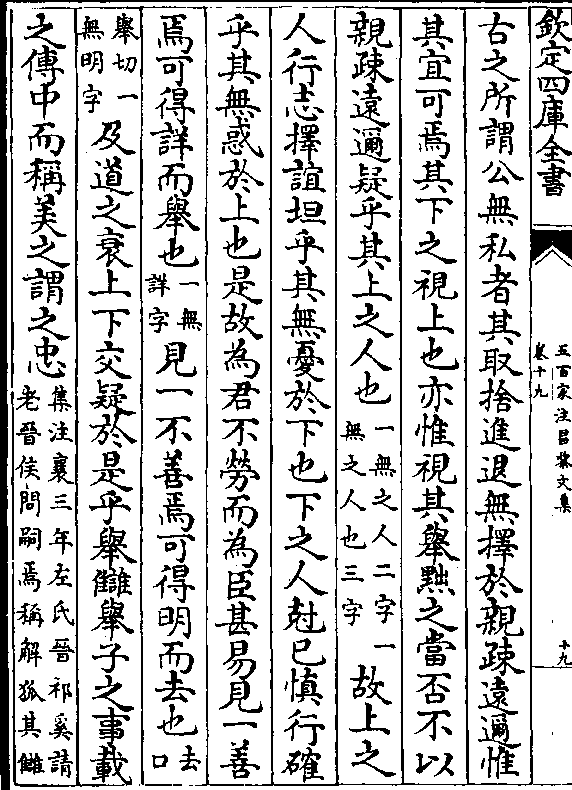 欽定四庫全書
五百家注昌黎文集
卷十九
十九
古之所謂公無私者其取捨進退無擇於親疎遠邇惟
其宜可焉其下之視上也亦惟視其舉黜之當否不以
親疎遠邇疑乎其上之人也一無之人二字一無之人也三字故上之
人行志擇誼坦乎其無憂於下也下之人尅已慎行確
乎其無惑於上也是故為君不勞而為臣甚易見一善
焉可得詳而舉也一無詳字見一不善焉可得明而去也去口
舉切一無明字及道之衰上下交疑於是乎舉讎舉子之事載
之傳中而稱美之謂之忠集注襄三年左氏晉祁奚請老晉侯問嗣焉稱解狐其讎